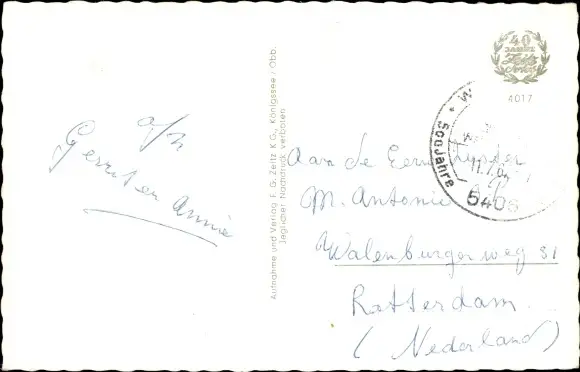 a/h
Gerrit en Annie
Aufnahme und Verlag F. G. Zeitz K G., Königssee / Obb.
Jeglicher Nachdruck verboten
40
JAHRE
Zeitz
4017
500 Jahre
5408
Aan de Eerw.
M. Antonie
Walenburgerweg 81
Rotterdam
(Nederland)